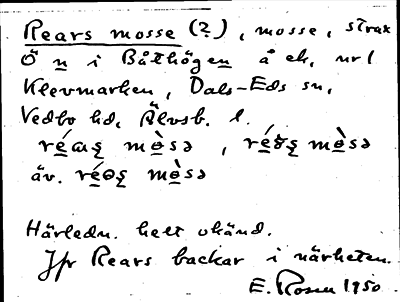 Rears mosse (?), mosse, strax
Ö n i Båthögen å ek. nr 1
Klevmarken, Dals-Eds sn,
Vedbo hd, Älvsb. l.
mosse.
äv.
Härledn. helt okänd.
Jfr Rears backar i närheten.
E. Rosen 1950